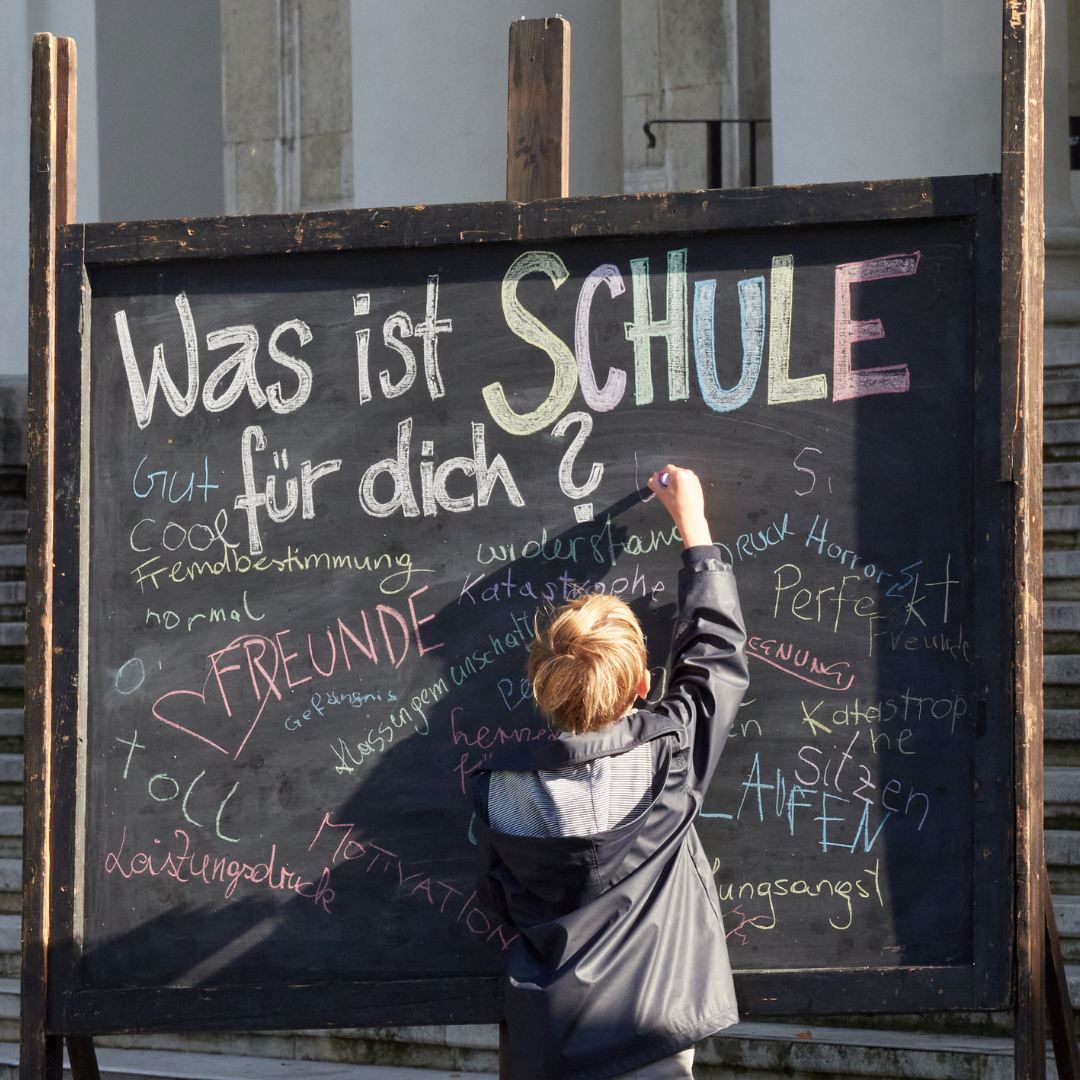 Was ist SCHULE
für dich?
Gut
cool
Fremdbestimmung
normal
FREUNDE
Gefängnis
Klassengemeinschaft
toll
Leistungsdruck
MOTIVATION
widerstand
Katastrophe
DRUCK Horror
Perfekt
Freunde
Katastrop
he
Sitzen
LAUFEN